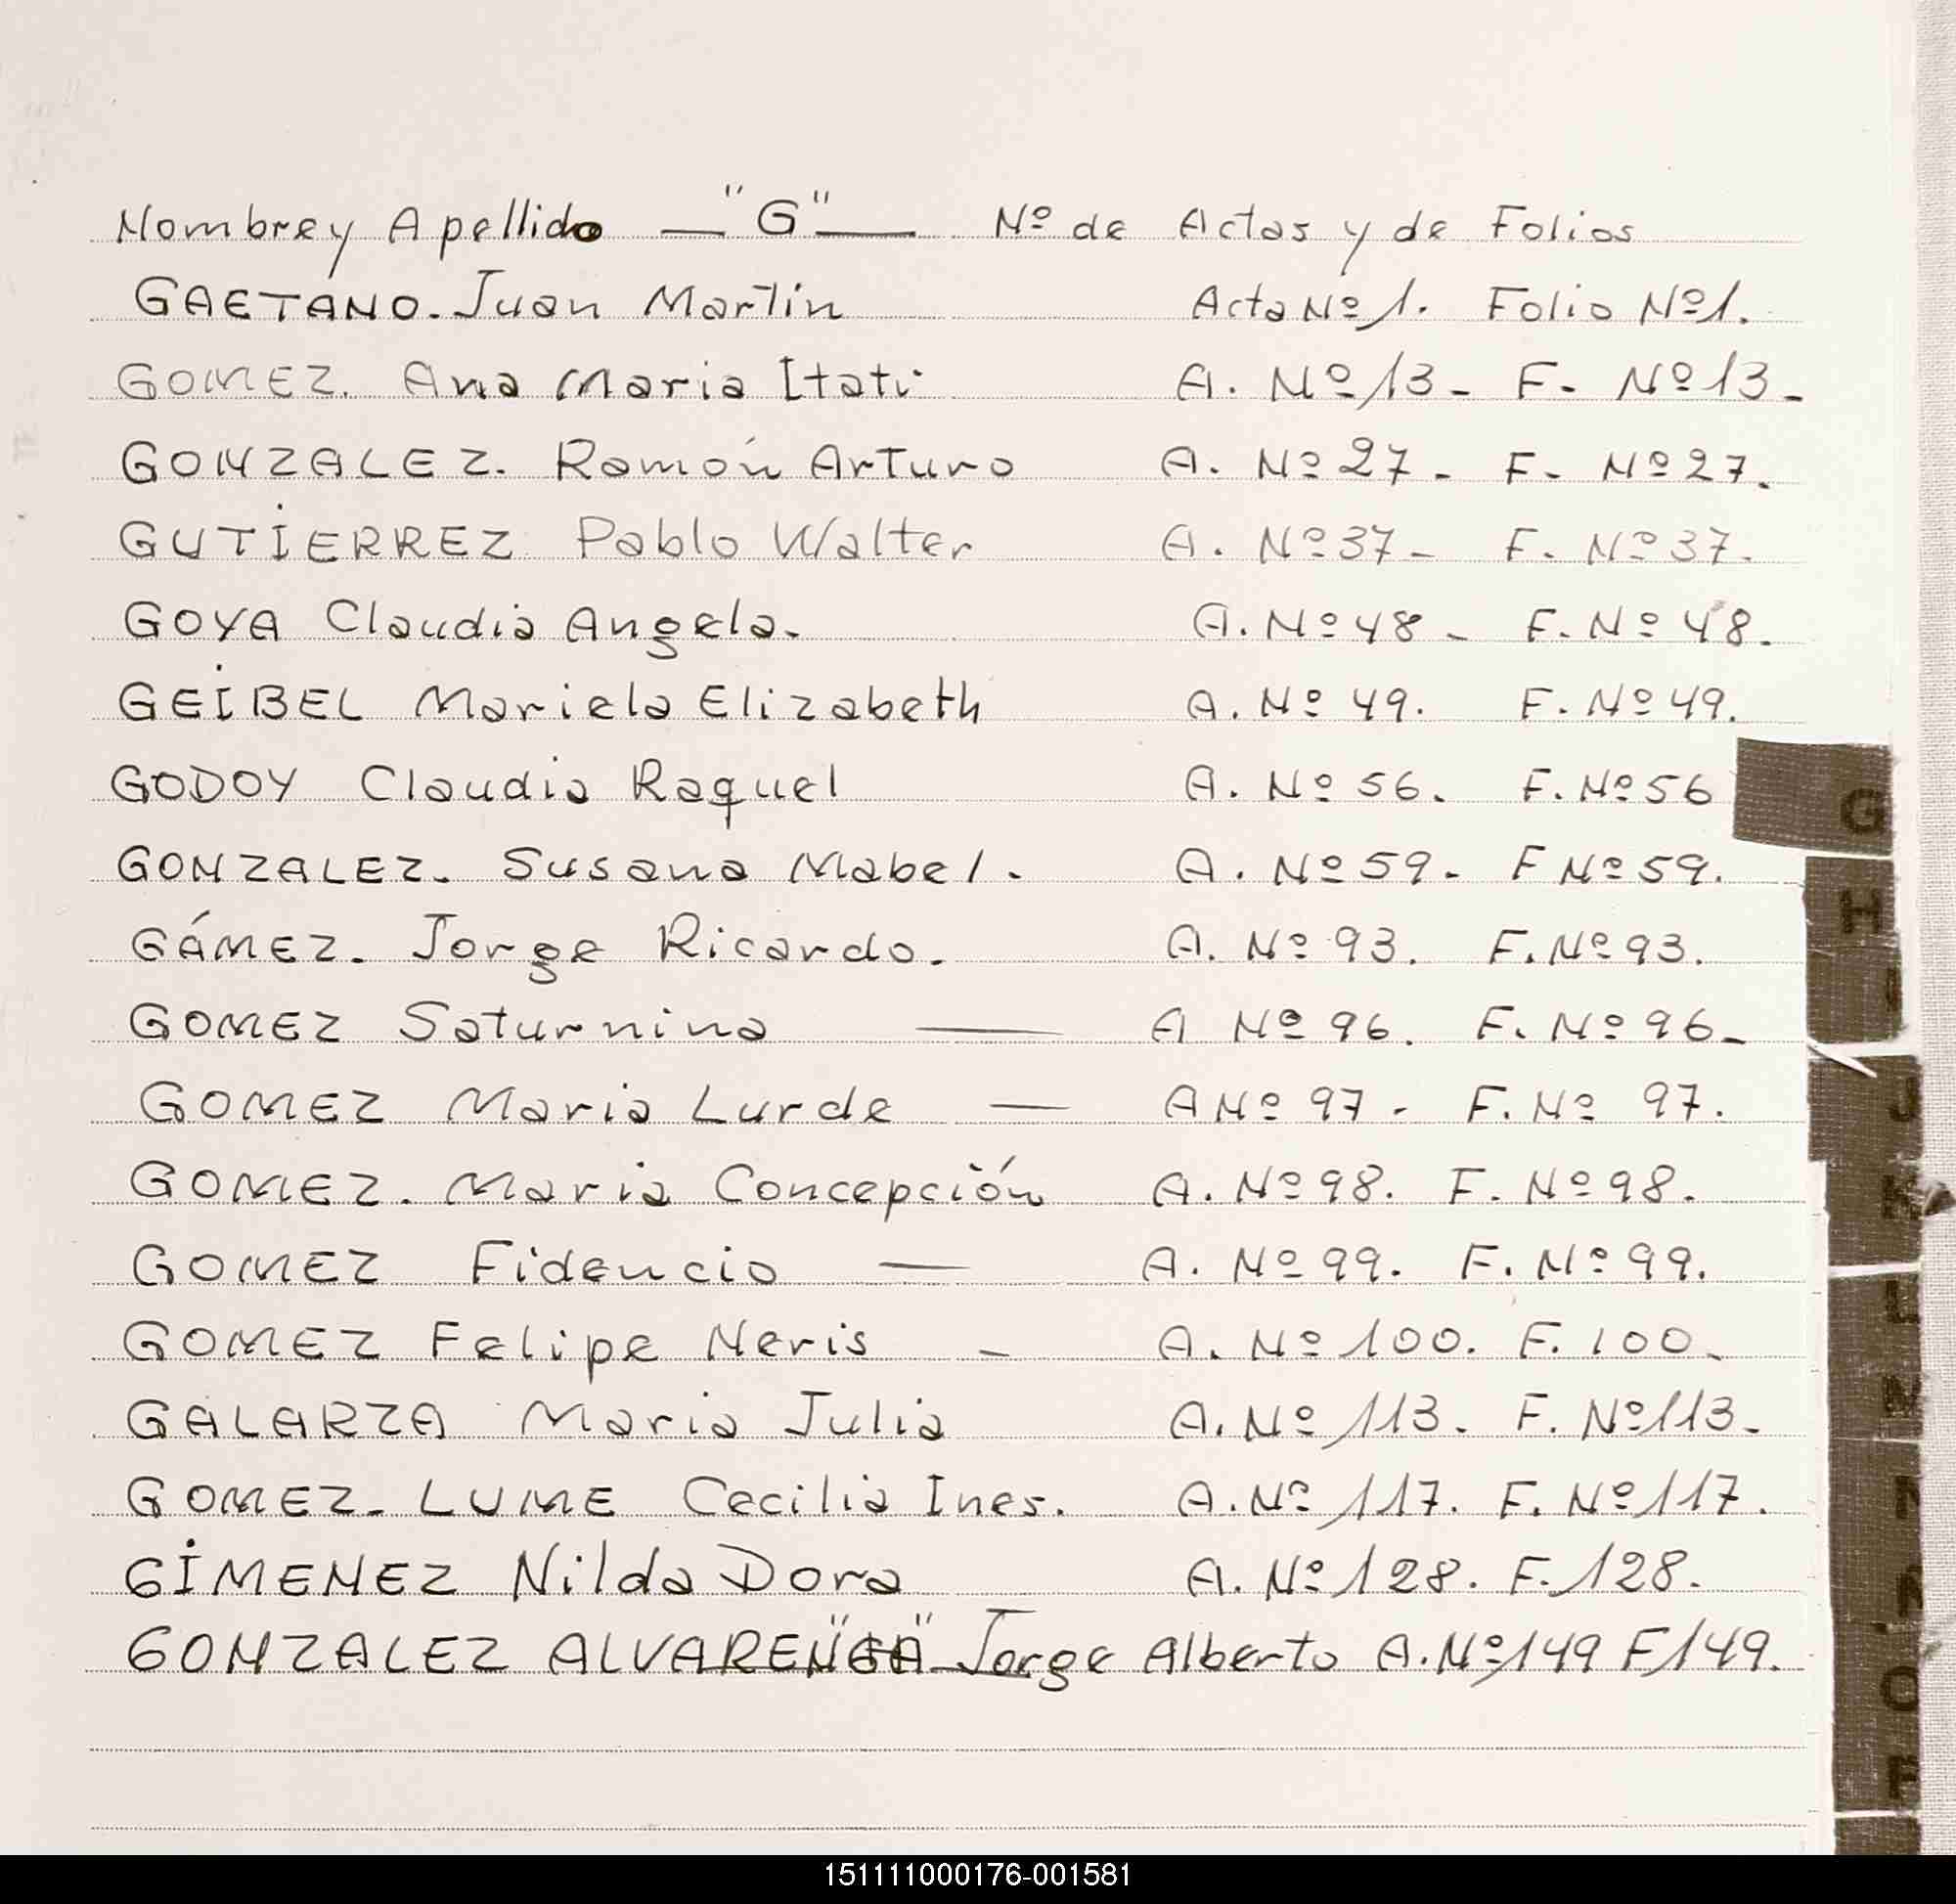 Nombre y Apellido — "G" — Nº de Actas y de Folios
GAETANO. Juan Martin Acta Nº 1. Folio Nº 1.
GOMEZ. Ana Maria Itati A. Nº 13 - F. Nº 13 -
GONZALEZ. Ramón Arturo A. Nº 27 - F. Nº 27.
GUTİERREZ Pablo Walter A. Nº 37 - F. Nº 37.
GOYA Claudia Angela. A. Nº 48 - F. Nº 48.
GEİBEL Mariela Elizabeth A. Nº 49. F. Nº 49.
GODOY Claudia Raquel A. Nº 56. F. Nº 56
GONZALEZ. Susana Mabel. A. Nº 59 - F Nº 59.
GÁMEZ. Jorge Ricardo. A. Nº 93. F. Nº 93.
GOMEZ Saturnina — A Nº 96. F. Nº 96 -
GOMEZ Maria Lurde — A Nº 97 - F. Nº 97.
GOMEZ. Maria Concepción A. Nº 98. F. Nº 98.
GOMEZ Fidencio — A. Nº 99. F. Nº 99.
GOMEZ Felipe Neris - A. Nº 100. F. 100 -
GALARZA Maria Julia A. Nº 113 - F. Nº 113 -
GOMEZ - LUME Cecilia Ines. A. Nº 117. F. Nº 117.
GİMENEZ Nilda Dora A. Nº 128. F. 128.
GONZALEZ ALVAREN"GA" Jorge Alberto A. Nº 149 F 149.
G
H
I
J
K
L
M
N
O
P
151111000176-001581